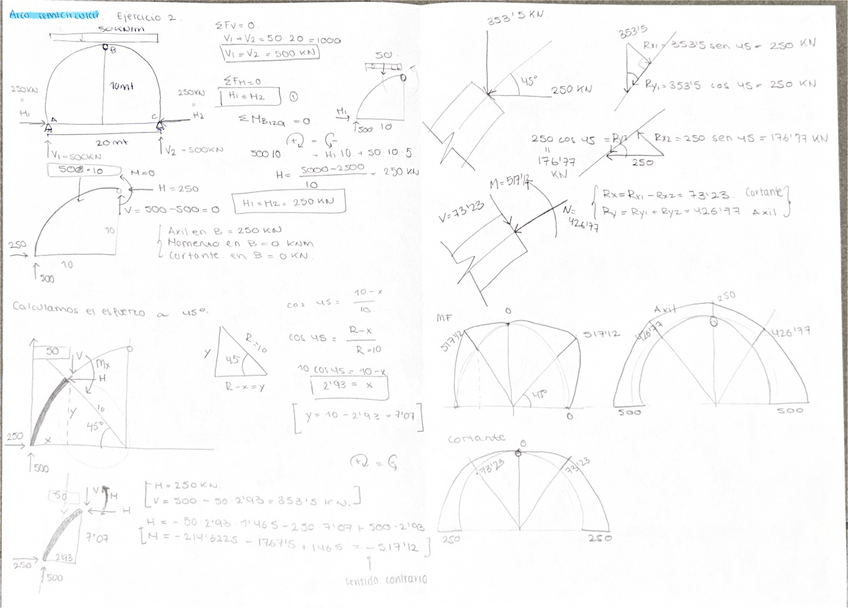 Arco semicircular. Ejercicio 2.
50KN/m
B
10mt
250KN
=
H1
A
C
250KN
=
H2
20mt
V1=500KN
V2=500KN
ΣFv=0
V1+V2=50·20=1000
V1=V2=500KN
ΣFH=0
H1=H2 ①
ΣMBizq=0
50
H1
500 10
500·10 = H1·10 + 50·10·5
H= 5000-2500 / 10 = 250 KN
H1=H2=250 KN
50·10
M=0
H=250
V=500-500=0
10
250
10
500
Axil en B = 250KN
Momento en B = 0 KNm
Cortante en B = 0KN.
Calculamos el esfuerzo a 45º.
50
V
Mx
H
10
y
45º
x
250
500
R=10
y
45º
R-x=y
cos 45 = 10-x / 10
cos 45 = R-x / R=10
10 cos 45 = 10-x
2'93 = x
[y=10-2'93=7'07]
50
V
M
H
7'07
2'93
250
500
H=250KN.
V=500-50·2'93=353'5KN.
M=-50·2'93·1'465-250·7'07+500·2'93
M=-214'6225-1767'5+1465=-517'12
sentido contrario
353'5KN
45º
250KN
353'5
Rx1=353'5 sen 45=250 KN
Ry1=353'5 cos 45=250 KN
250 cos 45 = Ry2
=
176'77
KN
Rx2=250 sen 45=176'77 KN
250
M=517'12
V=73'23
N=
426'77
Rx=Rx1-Rx2=73'23. Cortante
Ry=Ry1+Ry2=426'97 Axil
MF
0
517'12
517'12
45º
0
Axil
250
426'77
426'97
500
500
Cortante
0
73'23
73'23
250
250